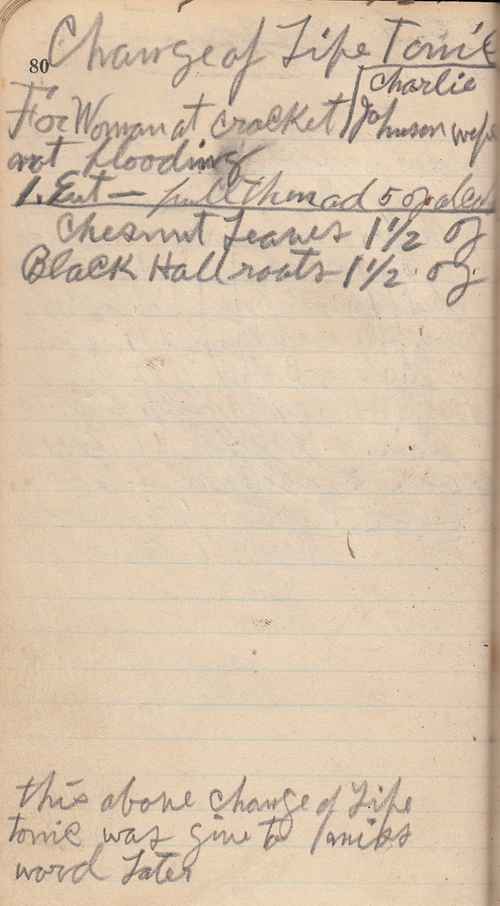 80 Change of Life Tonic
For Woman at Crocket
Charlie
Johnson wife
not flooding
1. Ext —
Chesnut Leaves 1 1/2 oz
Black Hall roots 1 1/2 oz
this above change of Life
tonic was give to miss
word Later